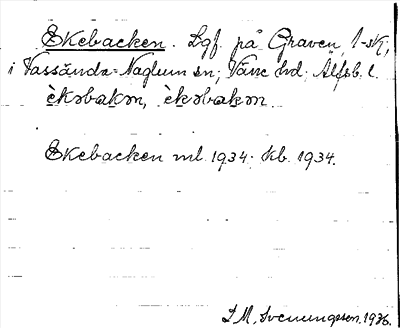 Ekebacken. Lgf. på Graven, 1-sk;
i Vassända-Naglum sn; Väne hd. Älfsb. l.
èkəbakən, èkəbakən.
Ekebacken ml. 1934; kb. 1934.
S. M. Svenungsson. 1936.